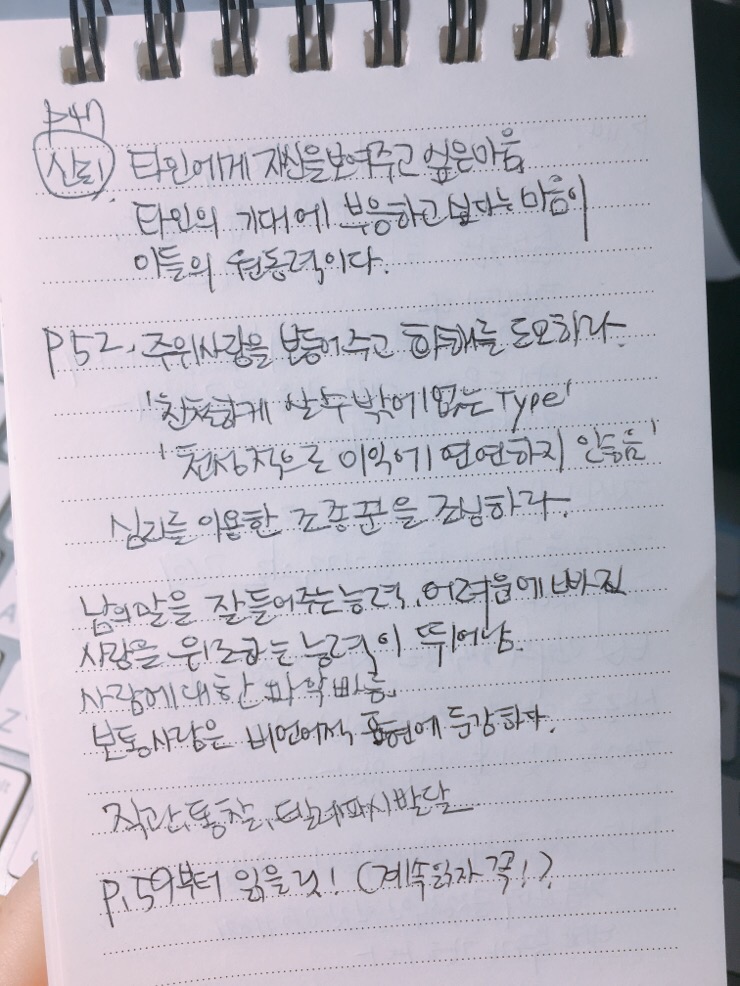 P47
신뢰, 타인에게 자신을 보여주고 싶은 마음,
타인의 기대에 부응하고 싶다는 마음이
이들의 원동력이다.
P52. 주위사람을 보듬어주고 화해를 도모하라.
'친절하게 살 수 밖에 없는 Type'
'천성적으로 이익에 연연하지 않음'
심리를 이용한 조종꾼을 조심하라.
남의 말을 잘 들어주는 능력, 어려움에 빠진
사람을 위로하는 능력이 뛰어남.
사람에 대한 파악 빠름.
보통사람은 비언어적 표현에 둔감하다.
직관, 통찰, 텔레파시 발달
P.59부터 읽을 것! (계속 읽자 꼭!)